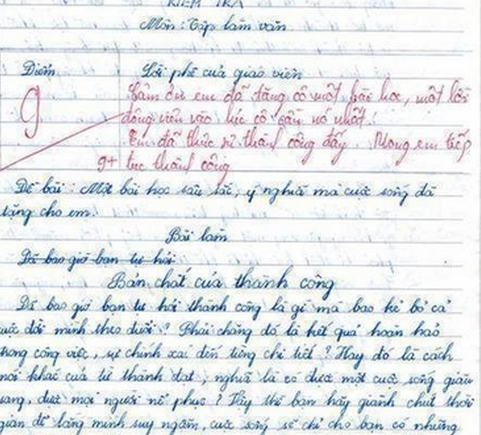 KIỂM TRA
Môn: Tập làm văn
Điểm
Lời phê của giáo viên
9
Cảm ơn em đã tặng cô một bài học, một lời
động viên vào lúc cô cần nó nhất!
Em đã thực sự thành công đấy. Mong em tiếp
9+ tục thành công
Đề bài: Một bài học sâu sắc, ý nghĩa mà cuộc sống đã
tặng cho em.
Bài làm
Đã bao giờ bạn tự hỏi
Bản chất của thành công
Đã bao giờ bạn tự hỏi thành công là gì mà bao kẻ bỏ cả
cuộc đời mình theo đuổi? Phải chăng đó là kết quả hoàn hảo
trong công việc, sự chính xác đến từng chi tiết? Hay đó là cách
nói khác của từ thành đạt, nghĩa là có được một cuộc sống giàu
sang, được mọi người nể phục? Vậy thì bạn hãy giành chút thời
gian để lắng mình suy ngẫm, cuộc sống sẽ chỉ cho bạn có những